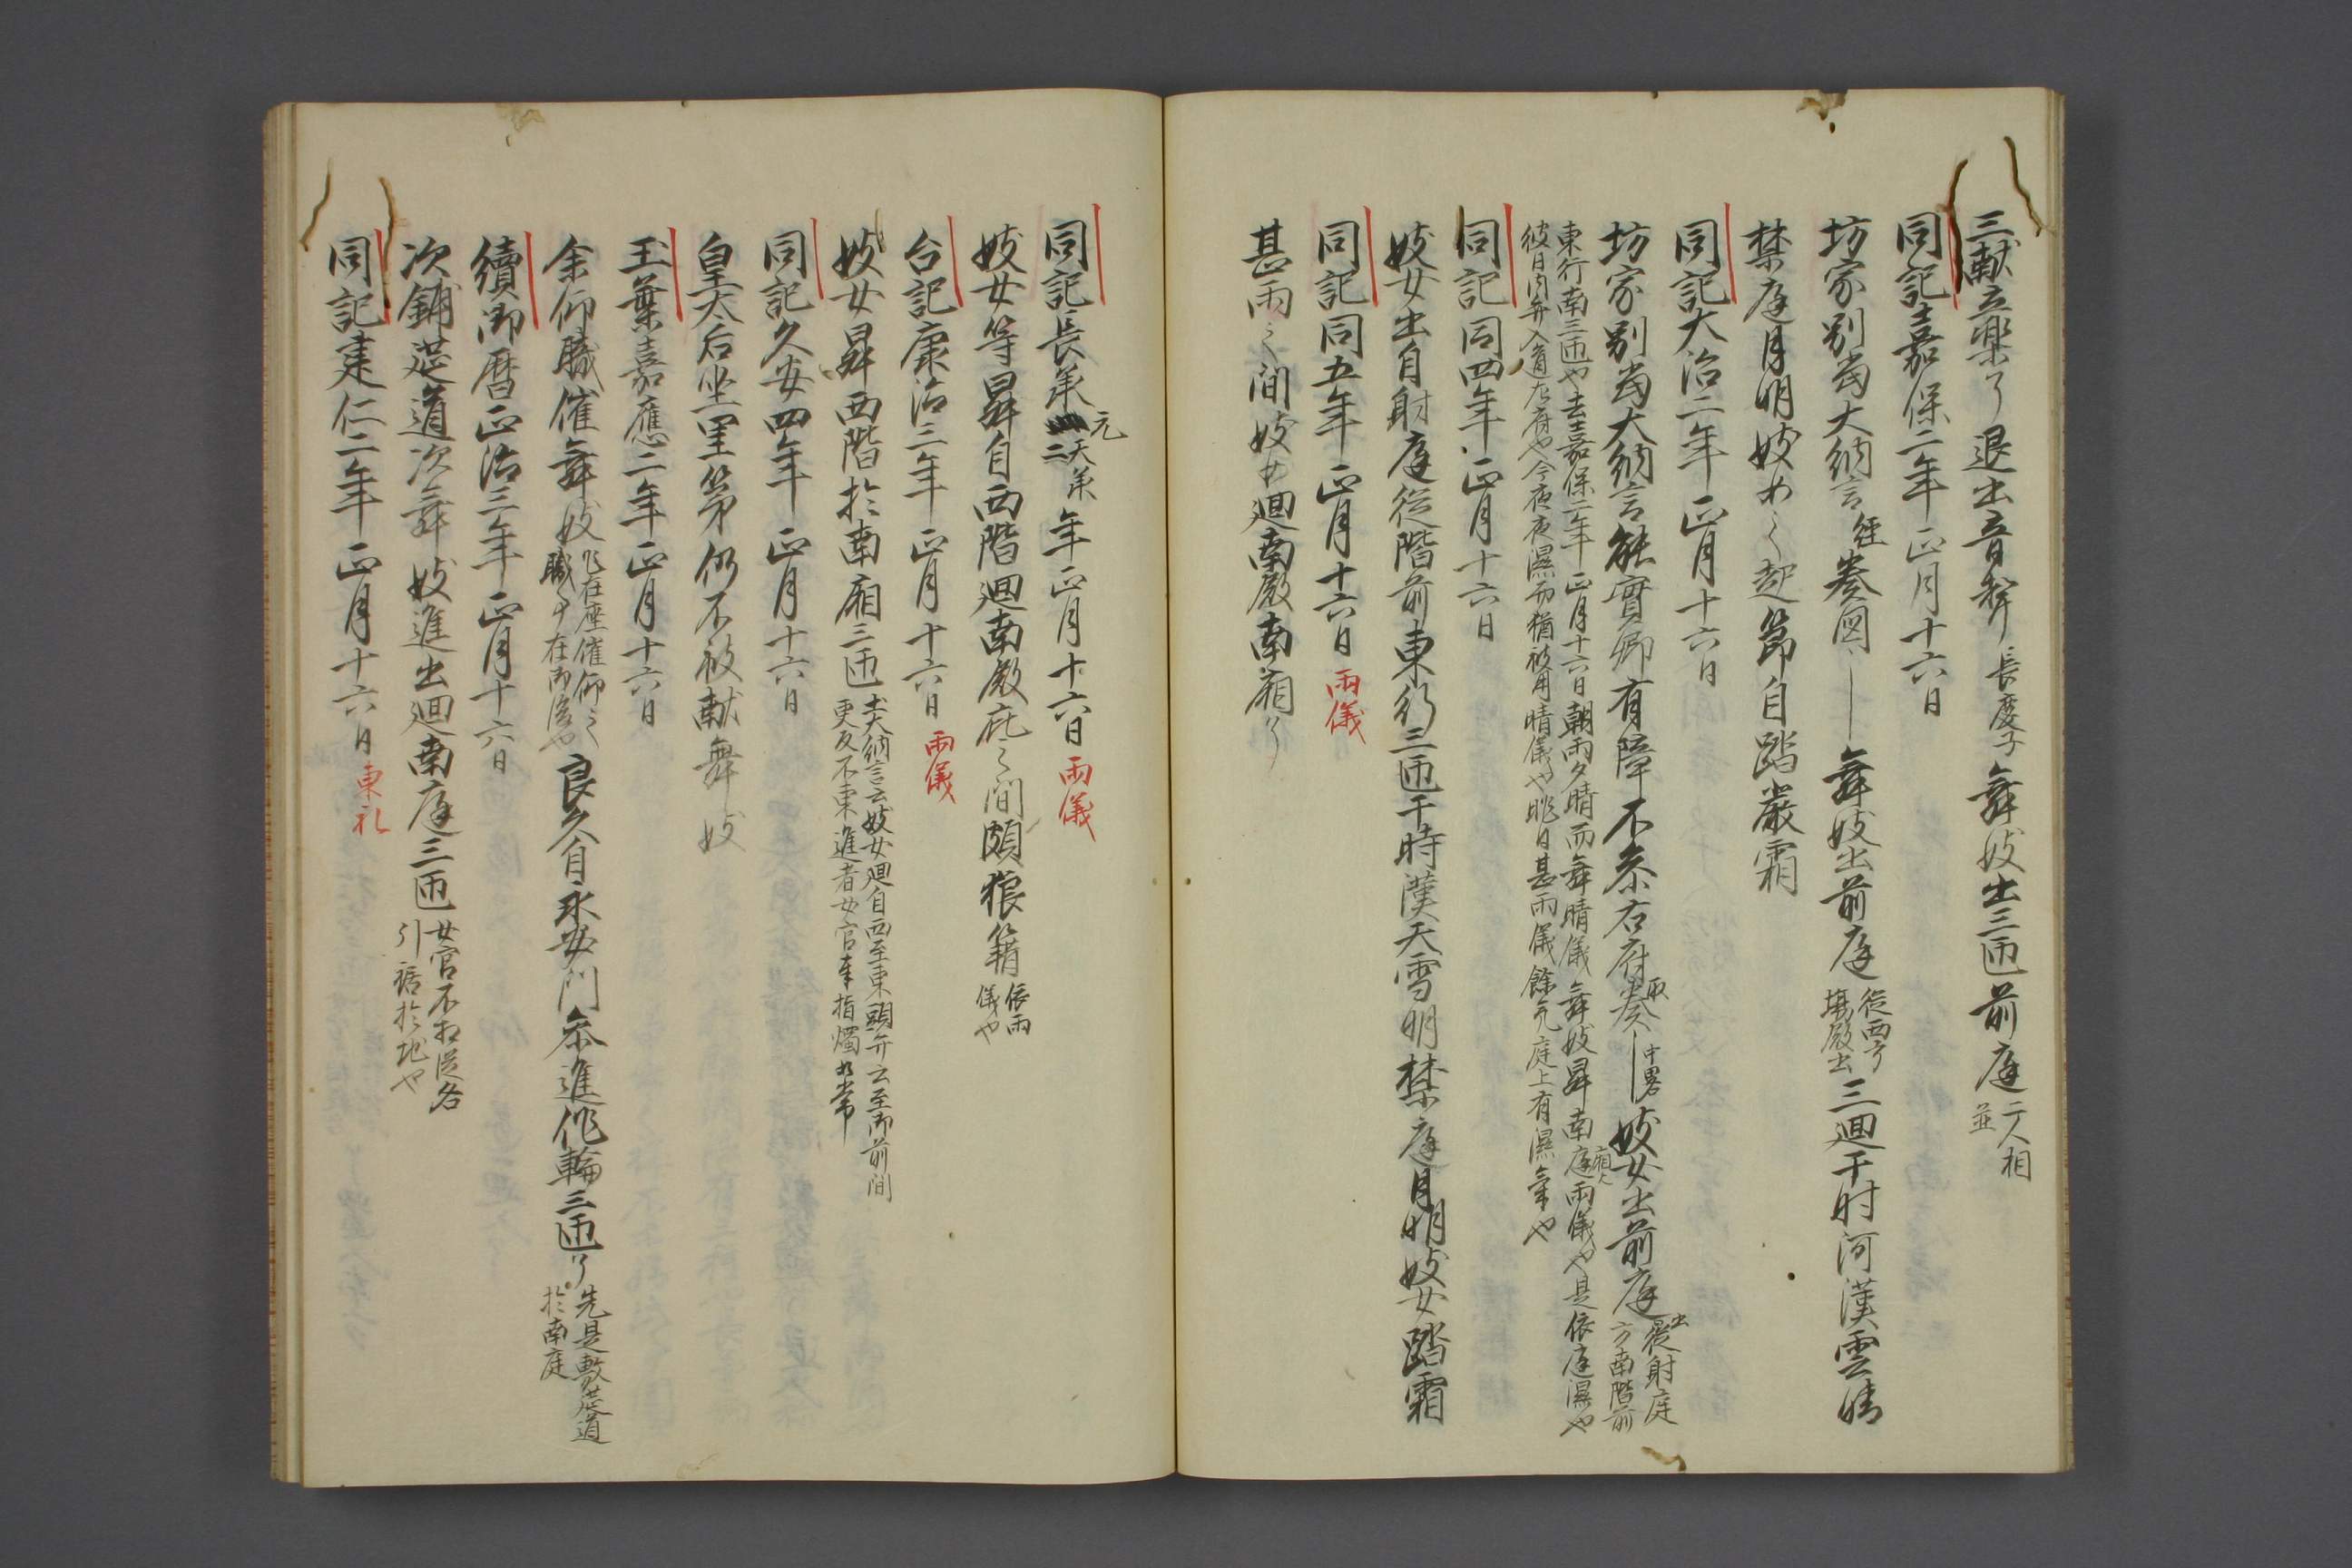 三献立楽了退出音声長慶子舞妓出三匝前庭二人相並
同記嘉保二年正月十六日
坊家別當大納言経奏図舞妓出前庭従西方殿出三廻于時河漢雲晴
禁庭月明妓女之起節自踏厳霜
同記大治二年正月十六日
坊家別當大納言能實卿有障不参右府取奏中略妓女出前庭出従射庭方南階前
東行南三匝也去嘉保二年正月十六日朝雨夕晴而舞晴儀舞妓昇南庭雨儀也是依庭濕也
彼日内弁入道左府也今夜庭濕而猶被用晴儀也昨日甚雨儀餘気庭上有濕気也
同記同四年正月十六日
妓女出自射庭従階前東行三匝于時漢天雪明禁庭月明妓女踏霜
同記同五年正月十六日雨儀
甚雨之間妓女廻南殿南廂了
同記長承元二天承年正月十六日雨儀
妓女等昇自西階廻南殿庇之間頗狼籍依雨儀也
台記康治三年正月十六日雨儀
妓女昇西階於南廂三匝大納言云妓女廻自西至東頭弁云至御前間
更反不東進者女官等指燭如常
同記久安四年正月十六日
皇太后坐里第仍不被献舞妓
玉葉嘉應二年正月十六日
余仰職催舞妓乍在座催仰之職事在御後也良久自永安門参進作輪三匝了先是敷莚道於南庭
續御暦正治三年正月十六日
次鋪莚道次舞妓進出廻南庭三匝女官不相從各引裾於地也
同記建仁二年正月十六日東礼